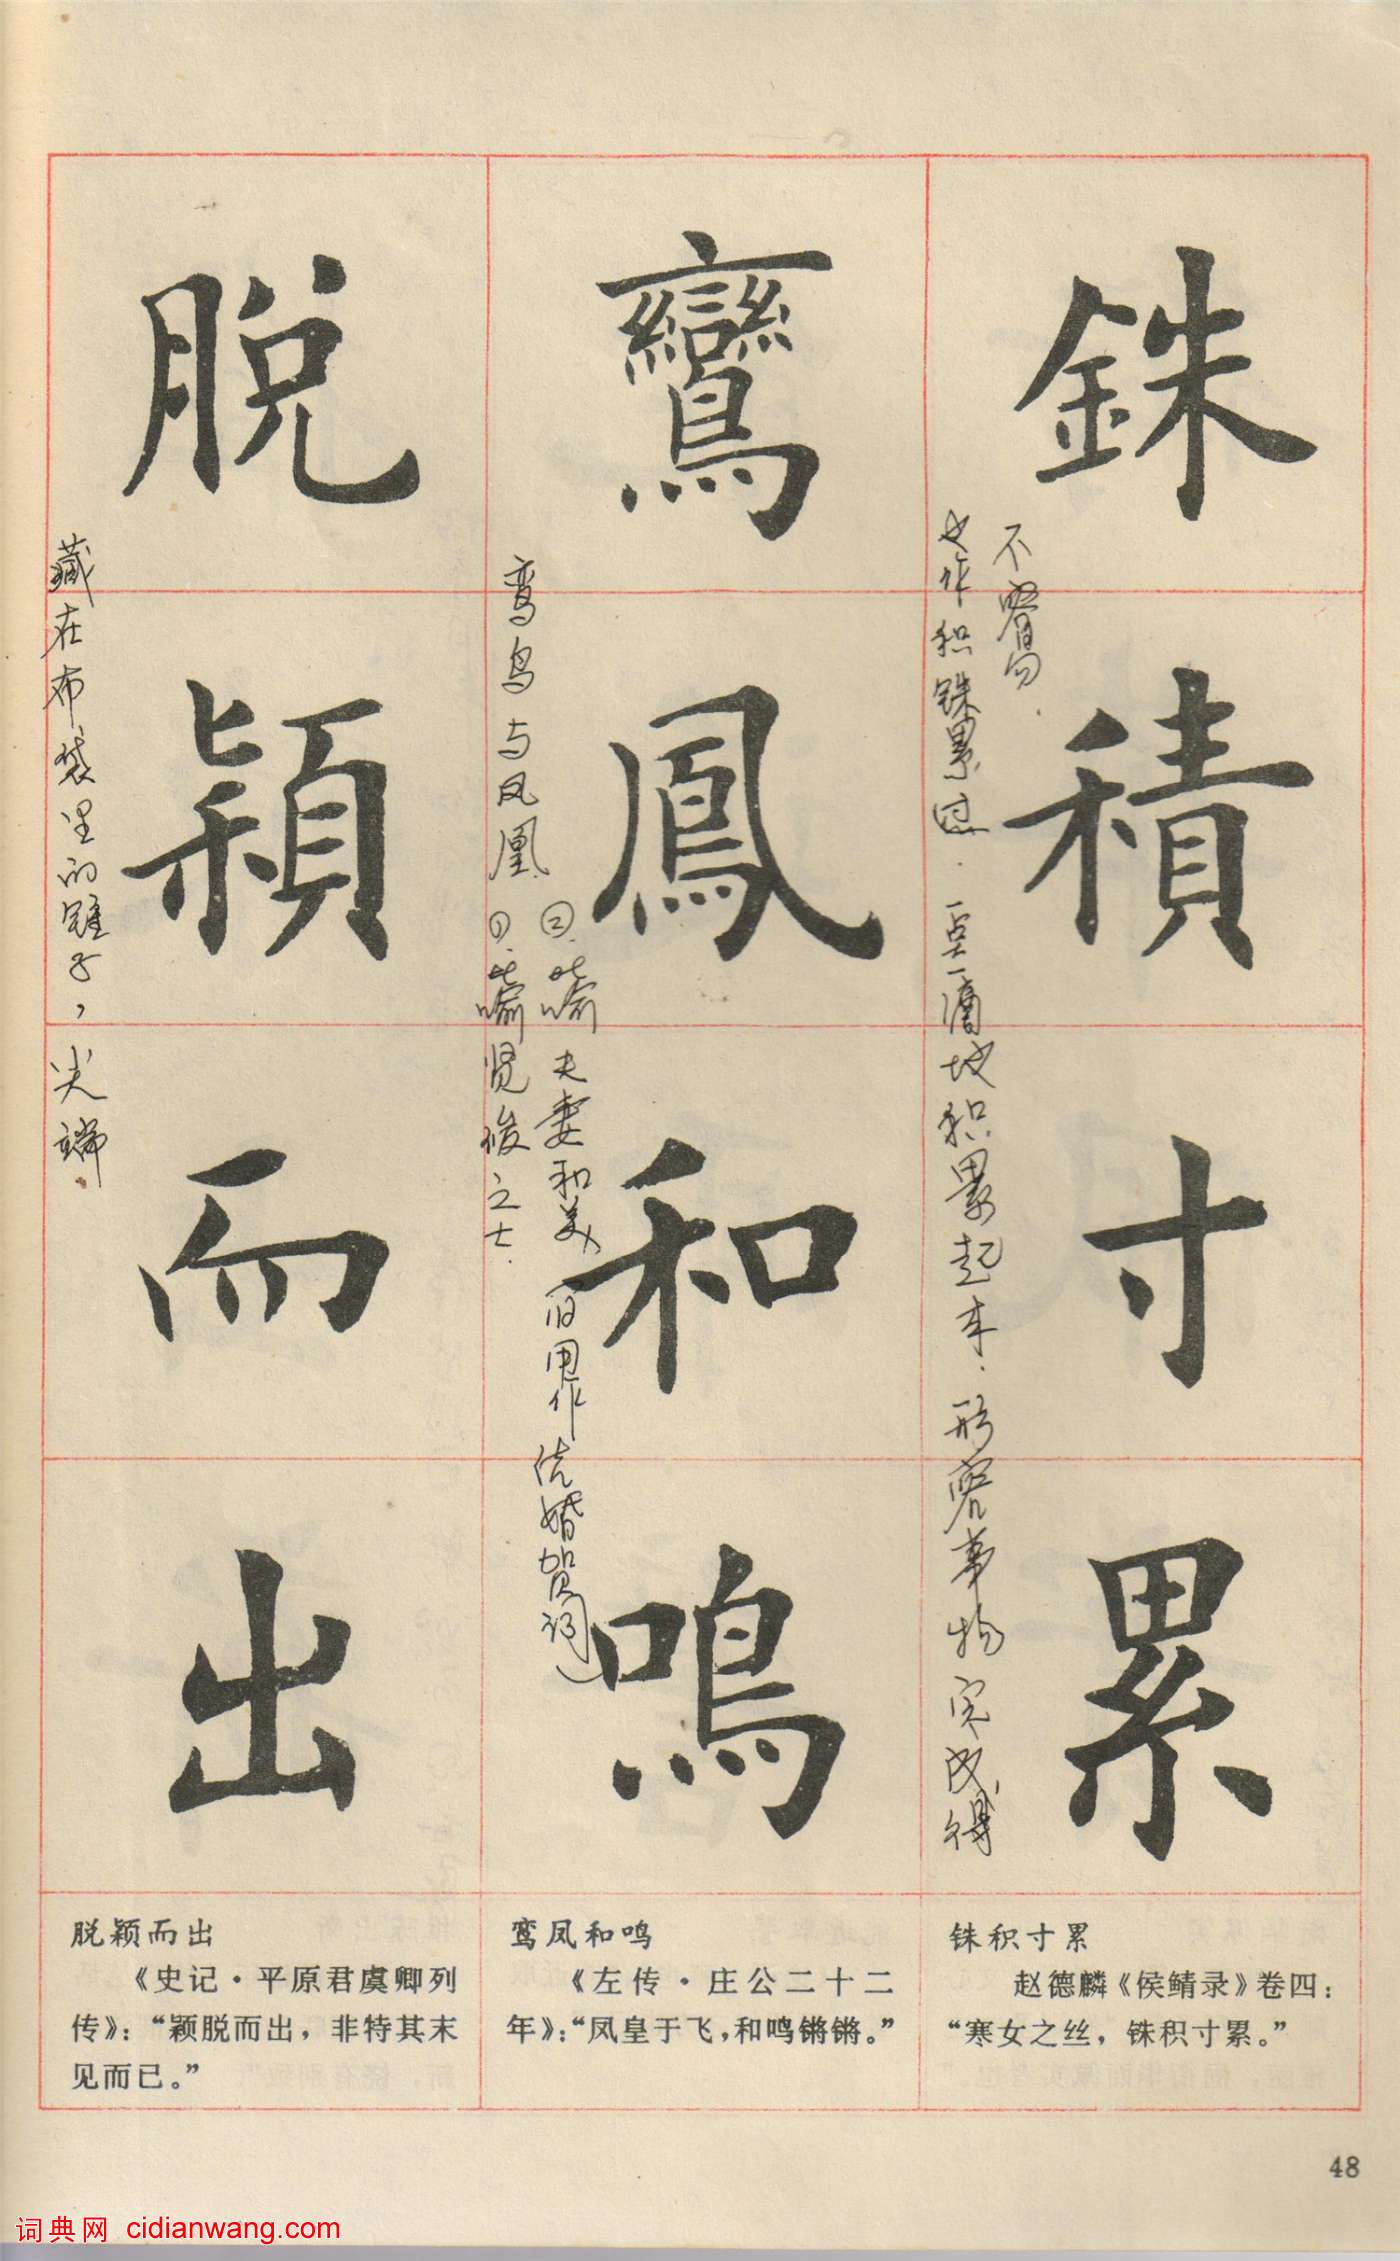 銖積寸累
也作积铢累寸。一点一滴地积累起来。形容事物完成得
不容易。
鸞鳳和鳴
鸾鸟与凤凰。①.比喻贤俊之士.
②.比喻夫妻和美
旧用作结婚贺词
脫穎而出
藏在布袋里的锥子，尖端.
铢积寸累
赵德麟《侯鲭录》卷四：
“寒女之丝，铢积寸累。”
鸾凤和鸣
《左传·庄公二十二
年》：“凤皇于飞，和鸣锵锵。”
脱颖而出
《史记·平原君虞卿列
传》：“颖脱而出，非特其末
见而已。”
48
词典网 cidianwang.com